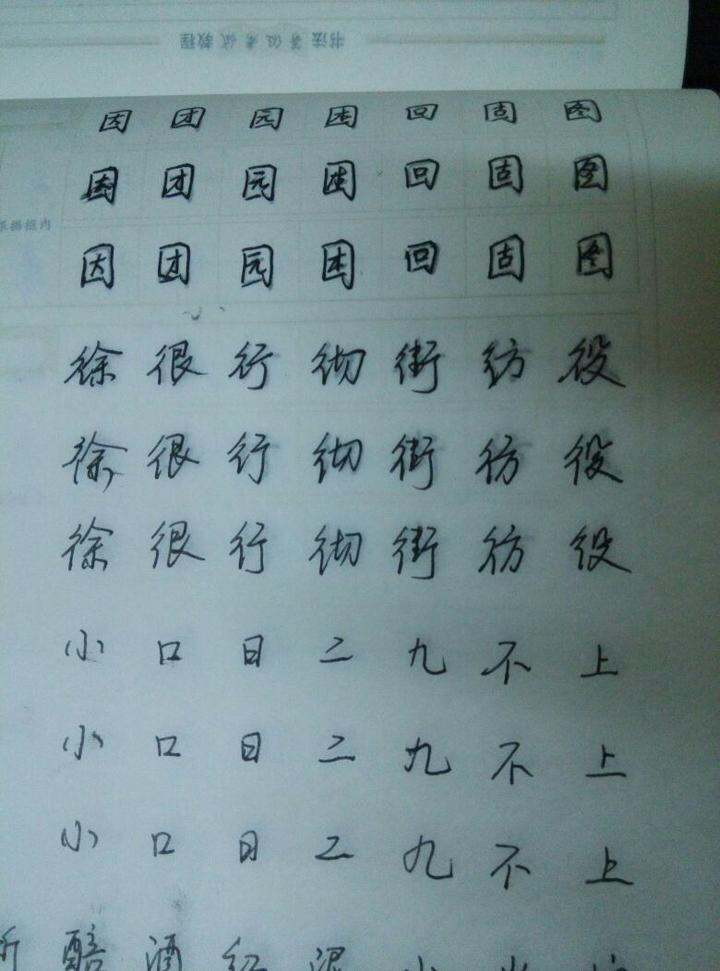 书法等级考试教程
因 团 园 困 回 固 图
因 团 园 困 回 固 图
因 团 园 困 回 固 图
徐 很 行 彻 街 彷 役
徐 很 行 彻 街 彷 役
徐 很 行 彻 街 彷 役
小 口 日 二 九 不 上
小 口 日 二 九 不 上
小 口 日 二 九 不 上
醅 酒 红 泥 小